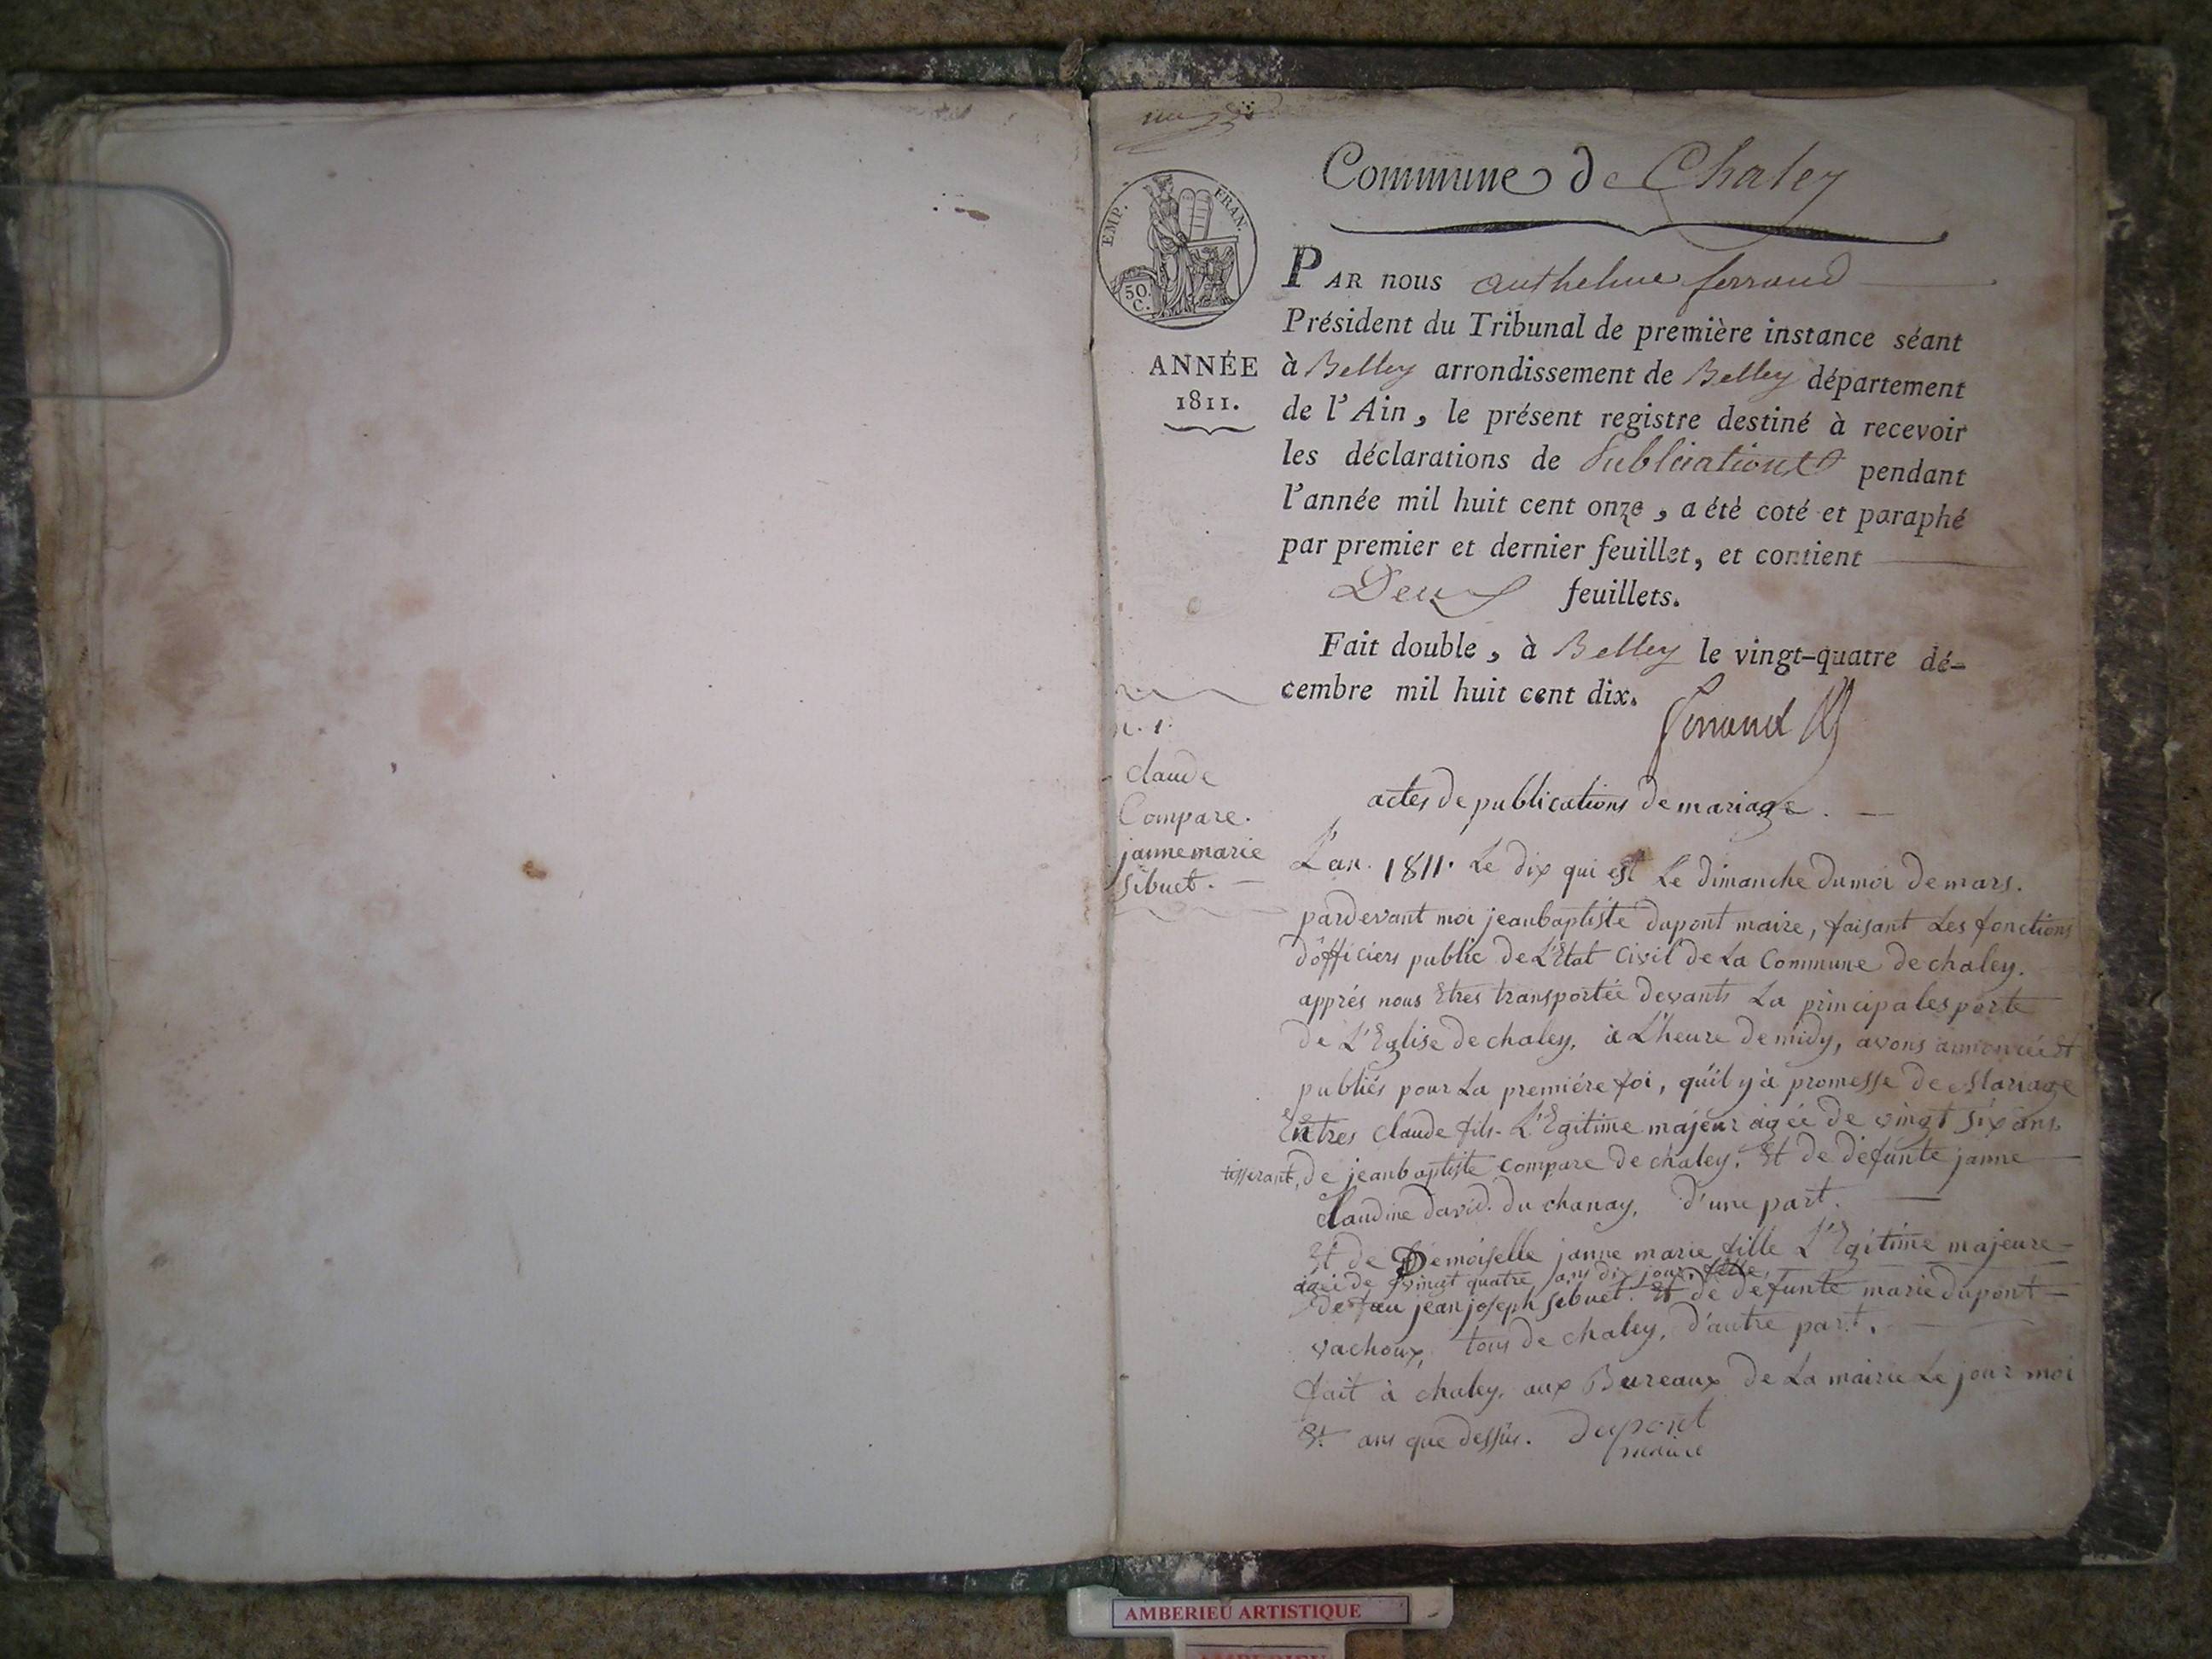 Commune de Chaley
EMP. FRAN.
50.
C.
ANNÉE
1811.
PAR nous anthelme ferrand
Président du Tribunal de première instance séant
à Belley arrondissement de Belley département
de l'Ain, le présent registre destiné à recevoir
les déclarations de Publications pendant
l'année mil huit cent onze, a été coté et paraphé
par premier et dernier feuillet, et contient
Deux feuillets.
Fait double, à Belley le vingt-quatre dé-
cembre mil huit cent dix.
ferrand
n. 1.
claude
Compare.
jannemarie
sibuet.
actes de publications de mariage.
L'an. 1811. Le dix qui est Le dimanche du moi de mars.
pardevant moi jeanbaptiste dupont maire, faisant Les fonctions
d'officiers public de L'Etat Civil de La Commune de chaley.
apprés nous Etres transportée devants La principales porte
de L'Eglise de chaley, à L'heure de midy, avons annoncée Et
publiés pour La premiére foi, qu'il y à promesse de Mariage
Entres claude fils L'Egitime majeur agée de vingt six ans
tisserant, de jeanbaptiste compare de chaley. Et de defunte janne
claudine david. du chanay, d'une part.
Et de Demoiselle janne marie fille L'Egitime majeure
agée de vingt quatre ans dix jour, fille,
de feu jean joseph sibuet. Et de defunte marie dupont
vachoux, tous de chaley, d'autre part.
fait à chaley, aux Bureaux de La mairie Le jour moi
Et ans que dessus. Dupont
maire
AMBERIEU ARTISTIQUE
AMBERIEU